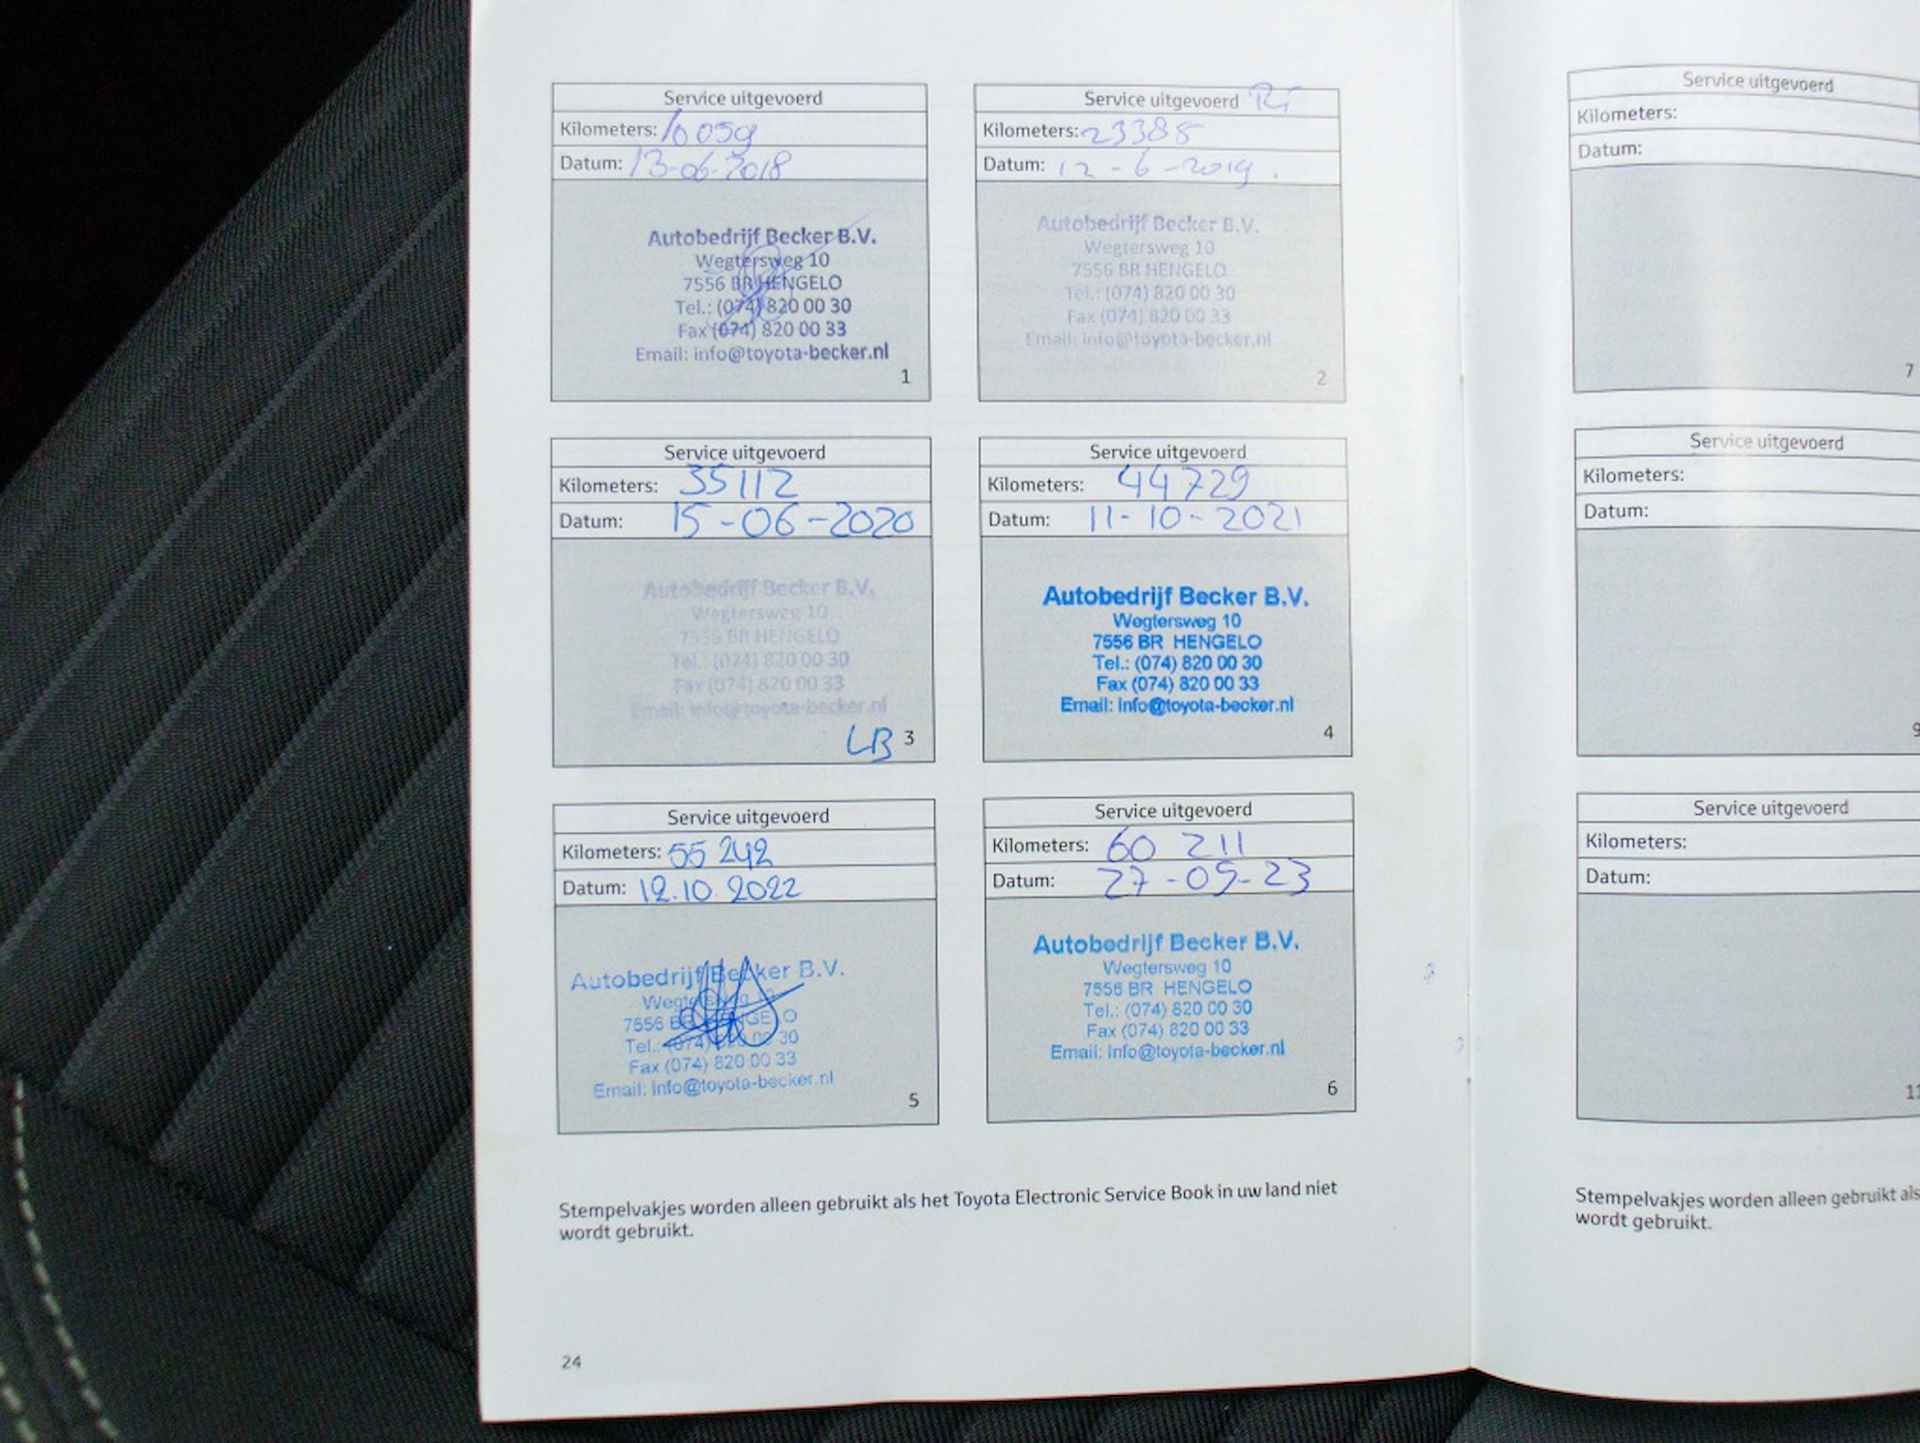 Service uitgevoerd
Kilometers: 10059
Datum: 13-06-2018
Autobedrijf Becker B.V.
Wegtersweg 10
7556 BR HENGELO
Tel.: (074) 820 00 30
Fax (074) 820 00 33
Email: info@toyota-becker.nl
1
Service uitgevoerd
Kilometers: 23385
Datum: 12-6-2019.
Autobedrijf Becker B.V.
Wegtersweg 10
7556 BR HENGELO
Tel.: (074) 820 00 30
Fax (074) 820 00 33
Email: info@toyota-becker.nl
2
Service uitgevoerd
Kilometers: 35112
Datum: 15-06-2020
Autobedrijf Becker B.V.
Wegtersweg 10
7556 BR HENGELO
Tel.: (074) 820 00 30
Fax (074) 820 00 33
Email: info@toyota-becker.nl
LB 3
Service uitgevoerd
Kilometers: 44729
Datum: 11-10-2021
Autobedrijf Becker B.V.
Wegtersweg 10
7556 BR HENGELO
Tel.: (074) 820 00 30
Fax (074) 820 00 33
Email: info@toyota-becker.nl
4
Service uitgevoerd
Kilometers: 55 242
Datum: 12.10.2022
Autobedrijf Becker B.V.
Wegtersweg 10
7556 BR HENGELO
Tel.: (074) 820 00 30
Fax (074) 820 00 33
Email: info@toyota-becker.nl
5
Service uitgevoerd
Kilometers: 60 211
Datum: 27-09-23
Autobedrijf Becker B.V.
Wegtersweg 10
7556 BR HENGELO
Tel.: (074) 820 00 30
Fax (074) 820 00 33
Email: info@toyota-becker.nl
6
Stempelvakjes worden alleen gebruikt als het Toyota Electronic Service Book in uw land niet
wordt gebruikt.
24
Service uitgevoerd
Kilometers:
Datum:
7
Service uitgevoerd
Kilometers:
Datum:
9
Service uitgevoerd
Kilometers:
Datum:
11
Stempelvakjes worden alleen gebruikt als
wordt gebruikt.